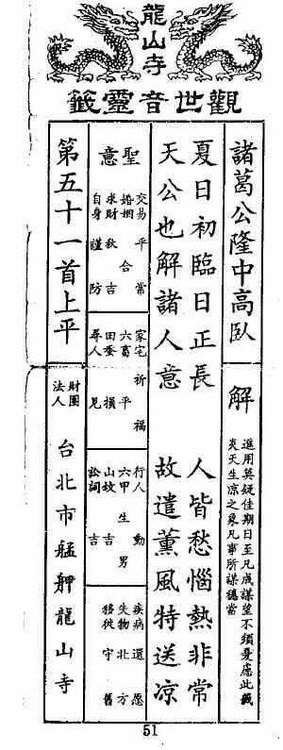 龍山寺
觀世音靈籤
諸葛公隆中高臥
解
進用莫疑佳期日至凡成謀望不須憂慮此籤
炎天生凉之象凡事所謀穩當
夏日初臨日正長 人皆愁惱熱非常
天公也解諸人意 故遣薰風特送凉
聖意
交易平常
婚姻合
求財秋吉
自身謹防
家宅祈福
六畜平
田蚕損
尋人見
行人動
六甲生男
山墳吉
訟詞吉
疾病還愿
失物北方
移徙守舊
第五十一首上平
財團法人
台北市艋舺龍山寺
51